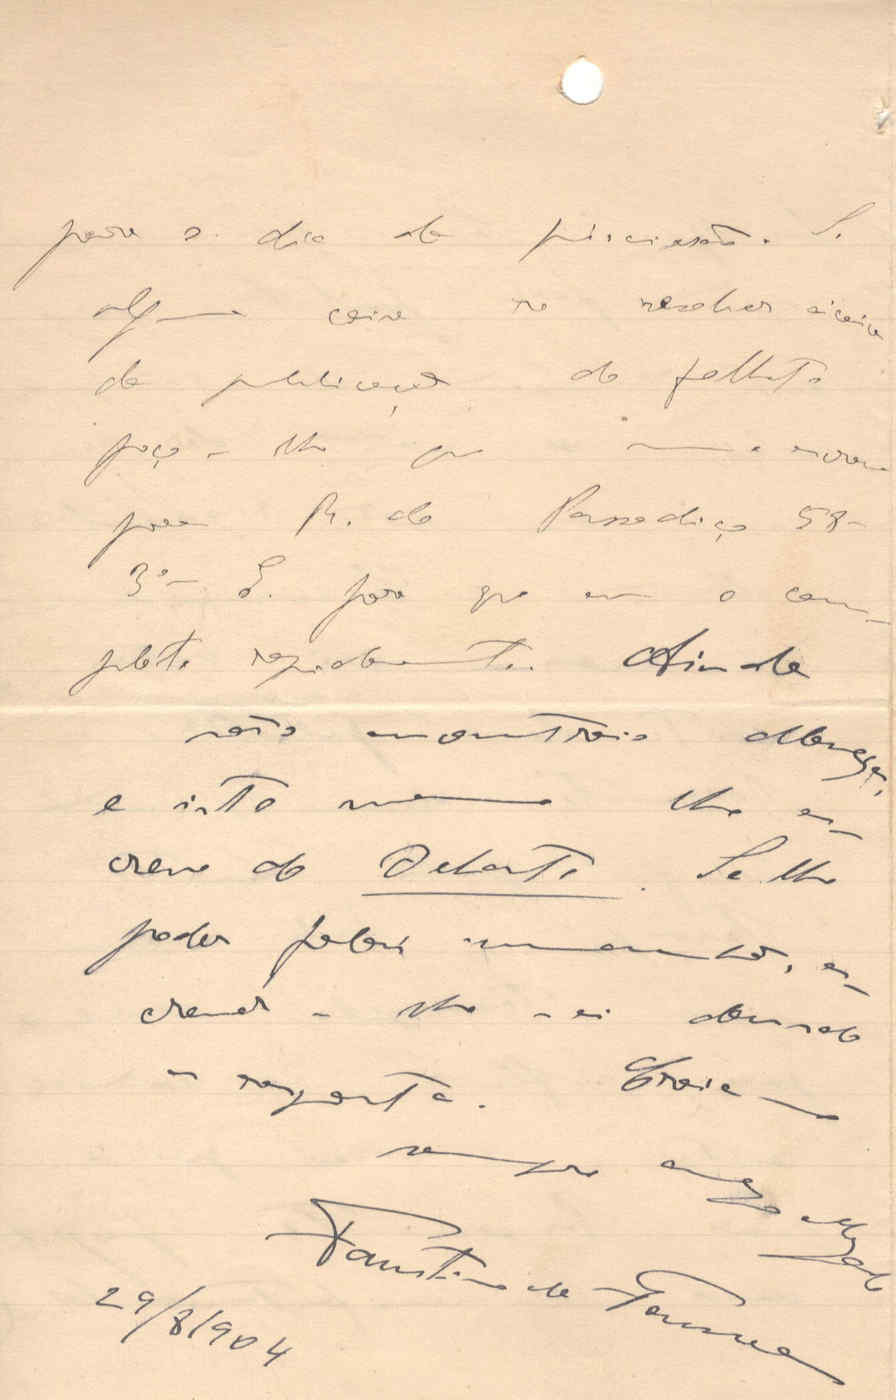 para o dia da precisão. Se
alguma coisa se resolver acerca
da publicação do folheto
peço-lhe que me escreva
para R. do Passadiço 58-
3º- E. para que eu o com-
plete rapidamente. Ainda
não encontrei
e isto mesmo lhe es-
creve do Debate. Se lhe
poder falar es-
creverá-lhe-ei dando
a resposta. Creia-me
sempre amigo obrigado
Faustino da Fonseca
29/8/904